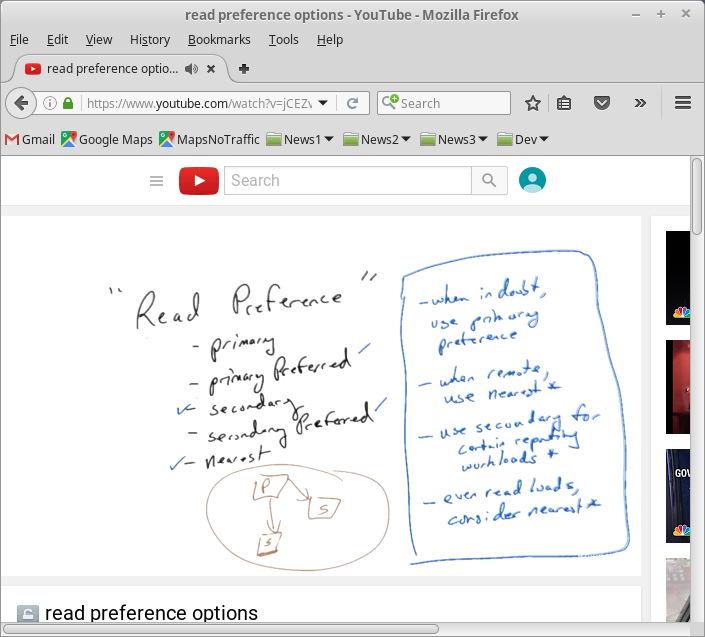 read preference options - YouTube - Mozilla Firefox
File Edit View History Bookmarks Tools Help
read preference optio...
https://www.youtube.com/watch?v=jCEZv
Search
Gmail Google Maps MapsNoTraffic News1 News2 News3 Dev
Search
"Read Preference"
- primary
- primary Preferred ✓
✓- secondary
- secondary Preferred ✓
✓- nearest
P
S
S
- when in doubt,
use primary
preference
- when remote,
use nearest *
- use secondary for
certain reporting
workloads *
- even read loads,
consider nearest *
GOV
read preference options